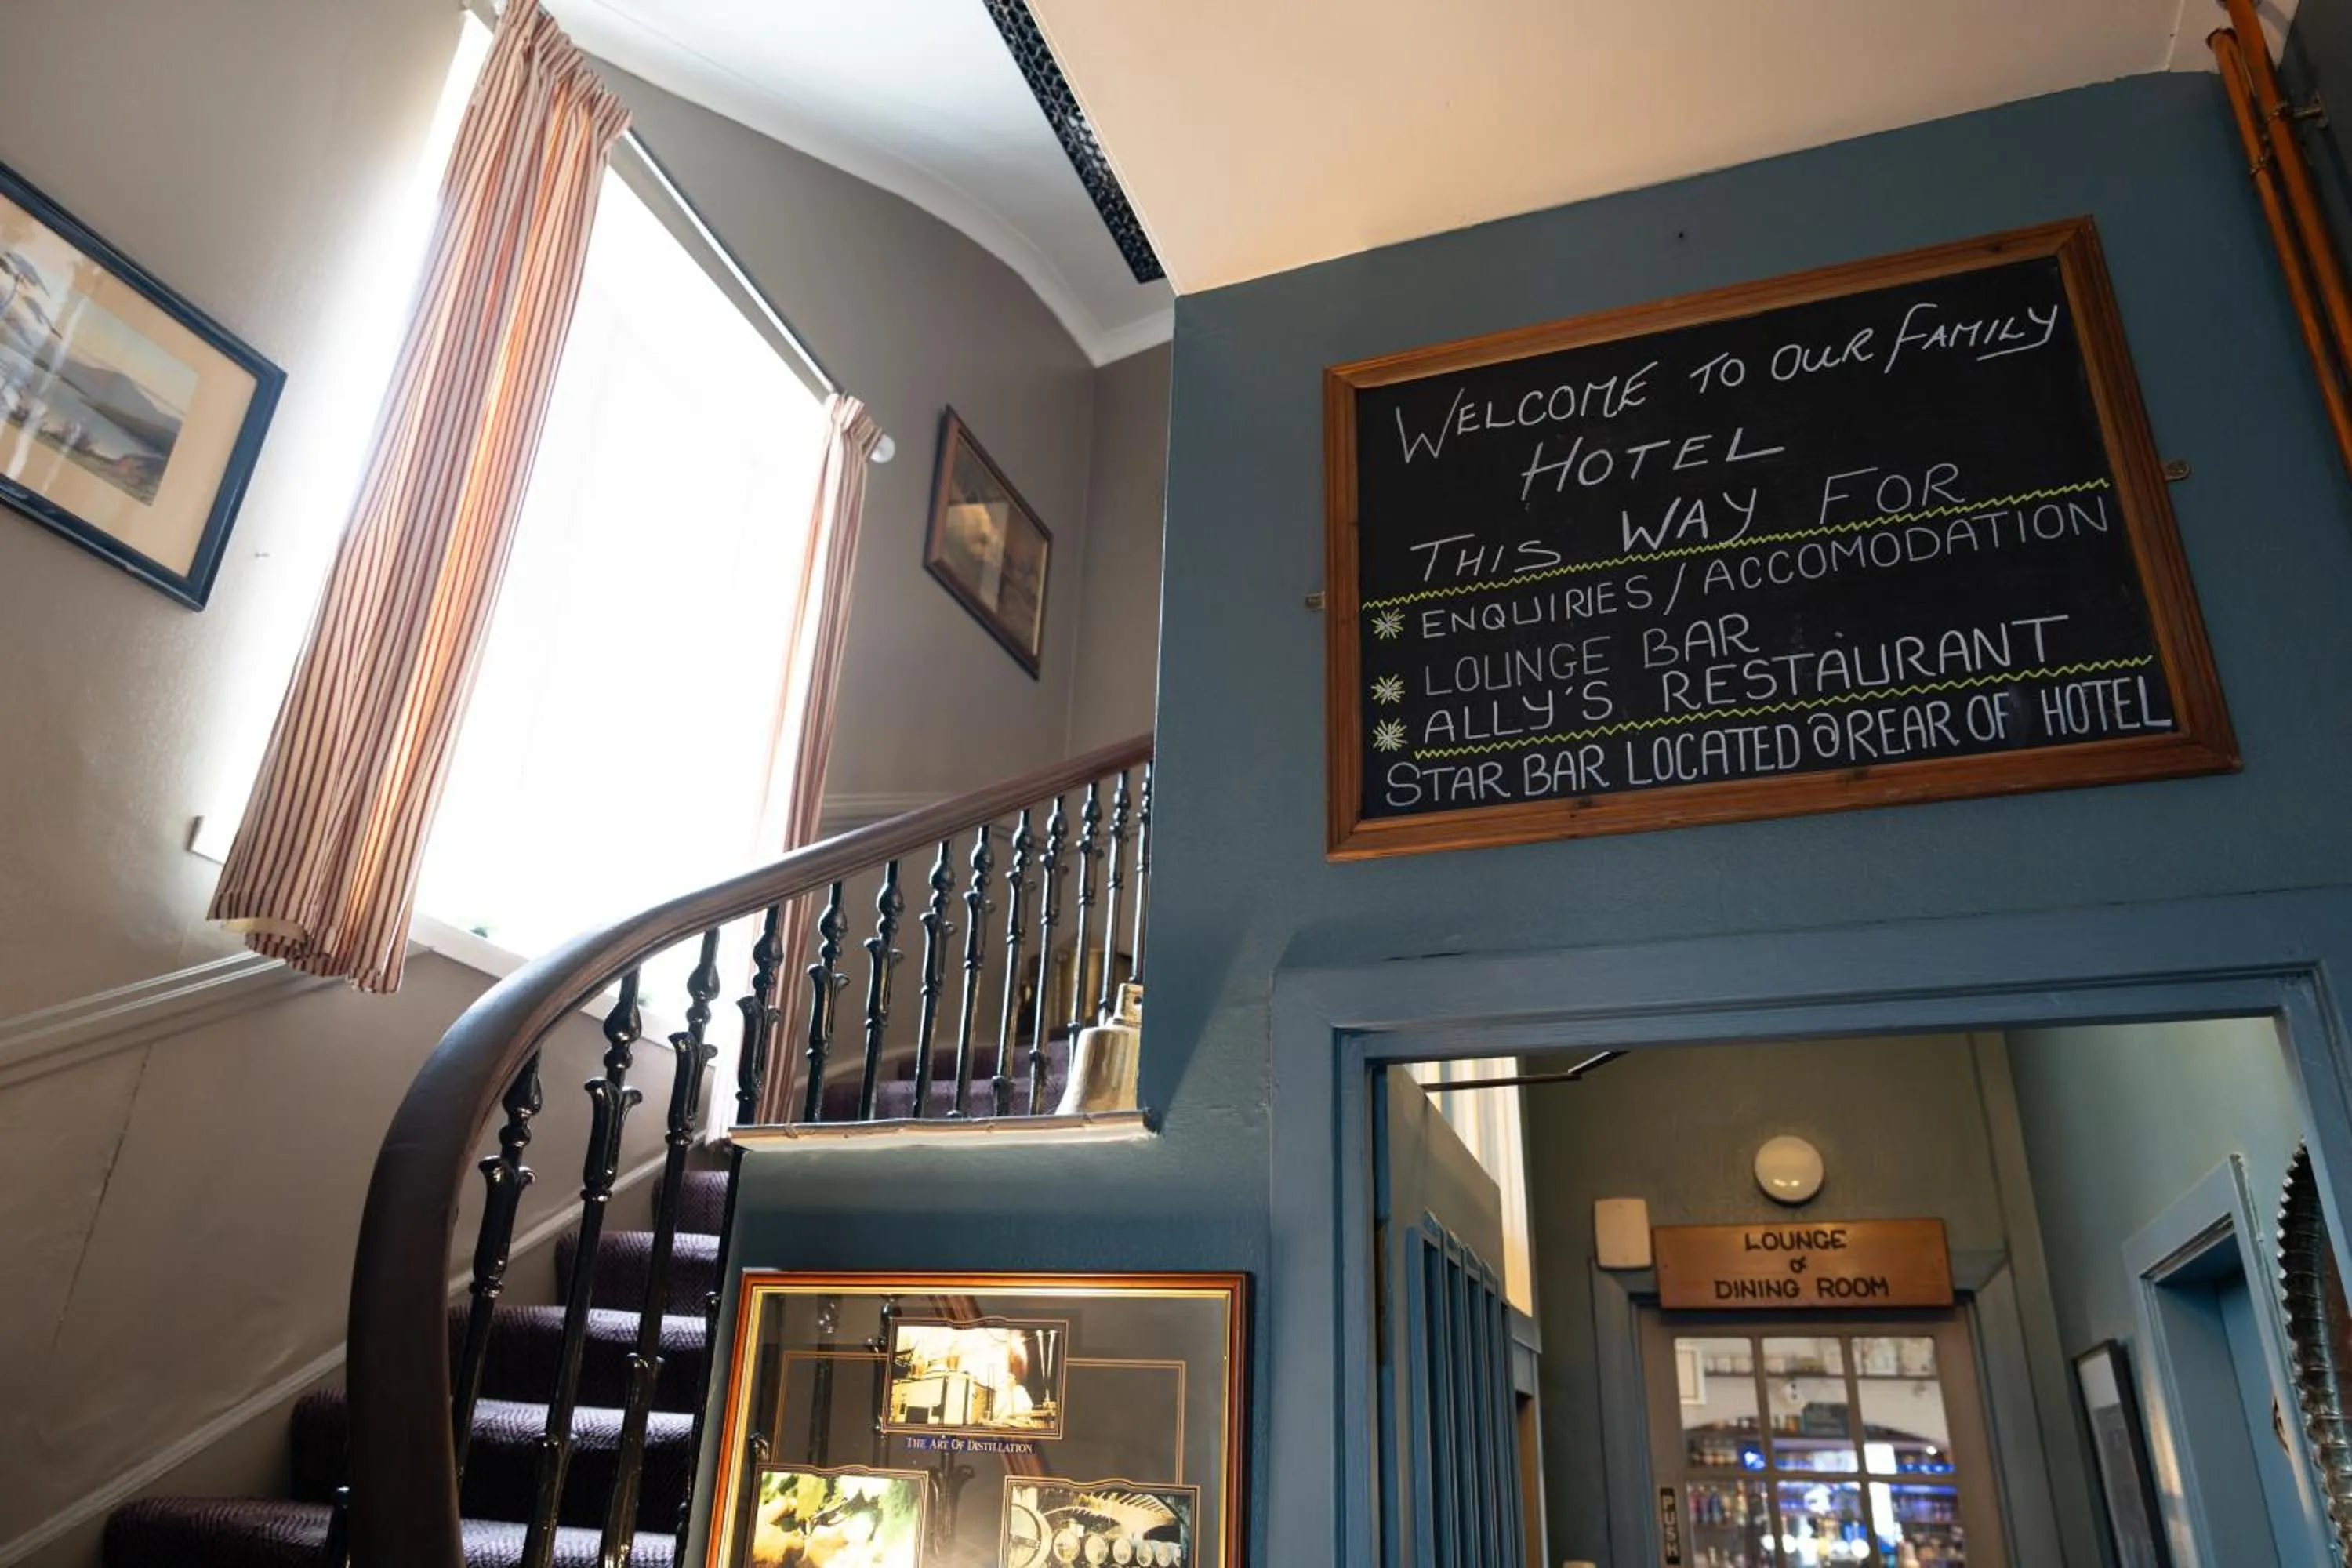 WELCOME TO OUR FAMILY
HOTEL
THIS WAY FOR
ENQUIRIES/ACCOMODATION
LOUNGE BAR
ALLY'S RESTAURANT
STAR BAR LOCATED @ REAR OF HOTEL
LOUNGE
&
DINING ROOM
PUSH
THE ART OF DISTILLATION